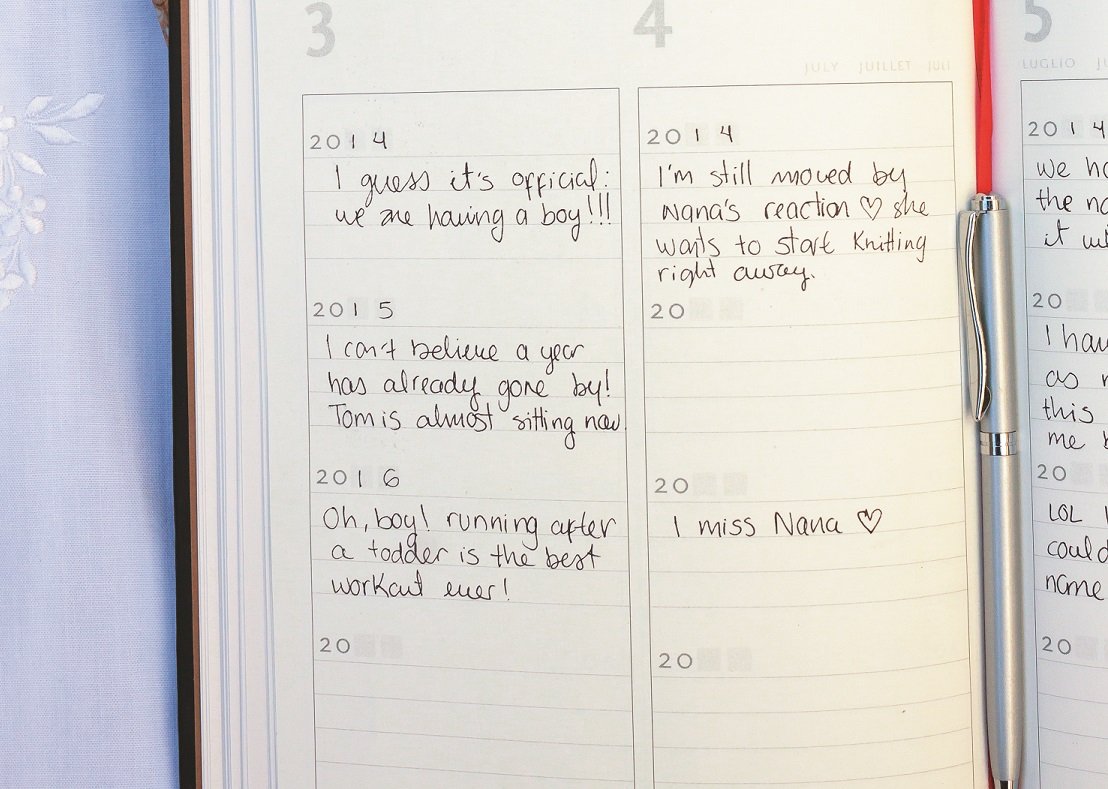 3
2014
I guess it's official:
we are having a boy!!!
2015
I can't believe a year
has already gone by!
Tom is almost sitting now
2016
Oh, boy! running after
a todder is the best
workout ever!
20
4
JULY JUILLET JULI
2014
I'm still moved by
Nana's reaction ♡ she
wants to start knitting
right away.
20
20
I miss Nana ♡
20
5
LUGLIO
2014
we
the
it
20
I
as
this
me
20
LOL
could
name
20